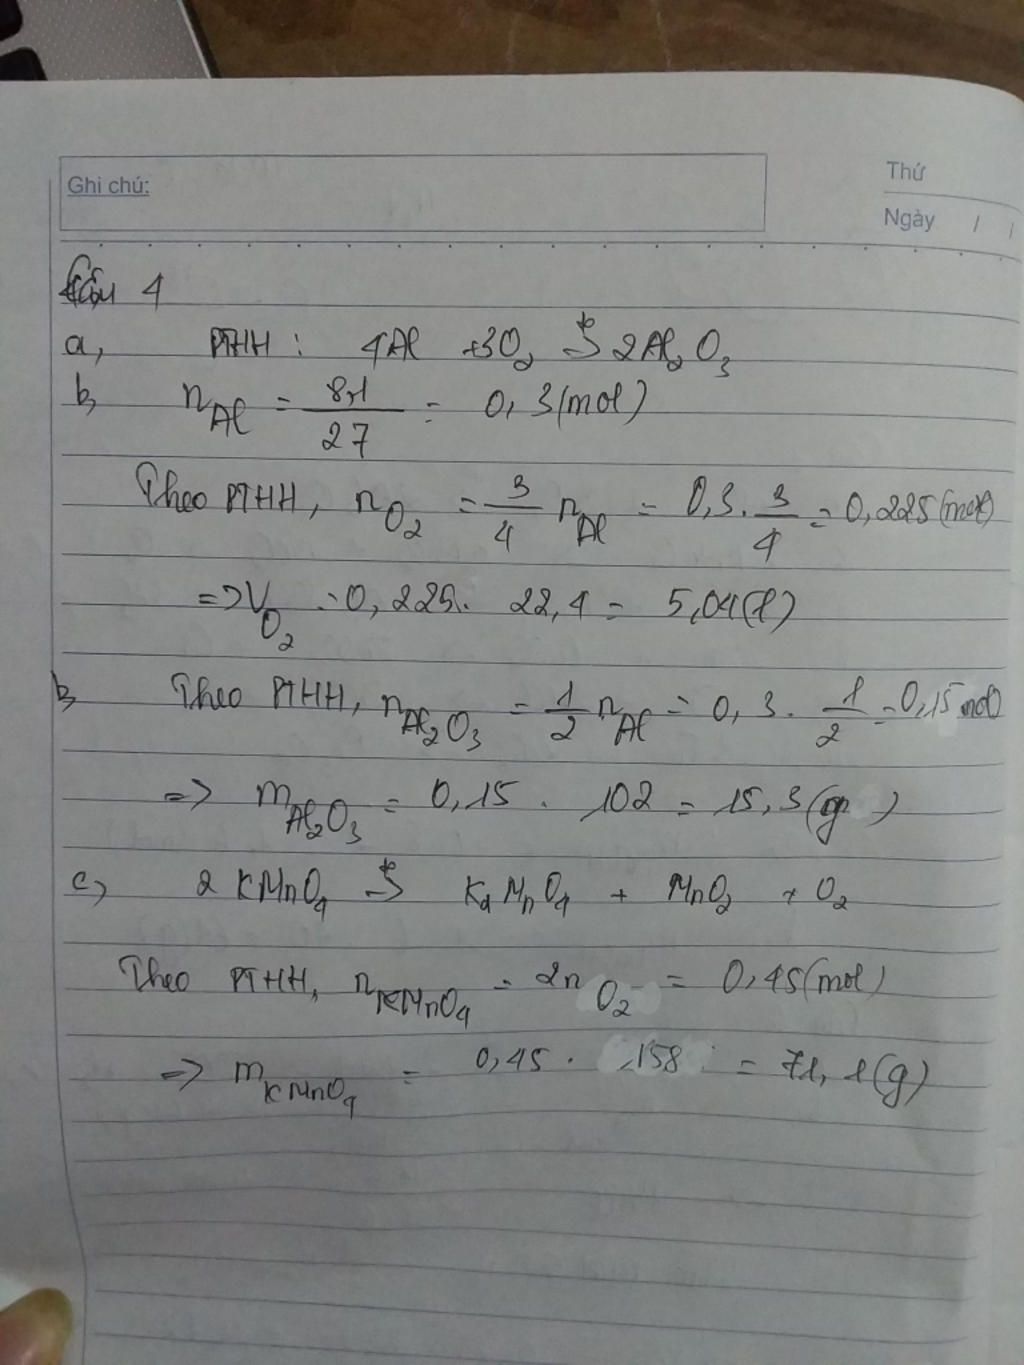 Ghi chú:
Thứ
Ngày / /
Câu 4
a, PTHH : 4Al +3O₂ →t° 2Al₂O₃
b, nAl = 8,1/27 = 0,3(mol)
Theo PTHH, nO₂ = 3/4 nAl = 0,3. 3/4 = 0,225(mol)
=> VO₂ = 0,225. 22,4 = 5,04(l)
b, Theo PTHH, nAl₂O₃ = 1/2 nAl = 0,3. 1/2 = 0,15 mol
=> mAl₂O₃ = 0,15 . 102 = 15,3(g)
c, 2KMnO₄ →t° K₂MnO₄ + MnO₂ + O₂
Theo PTHH, nKMnO₄ = 2nO₂ = 0,45(mol)
=> mKMnO₄ = 0,45 . 158 = 71,1(g)